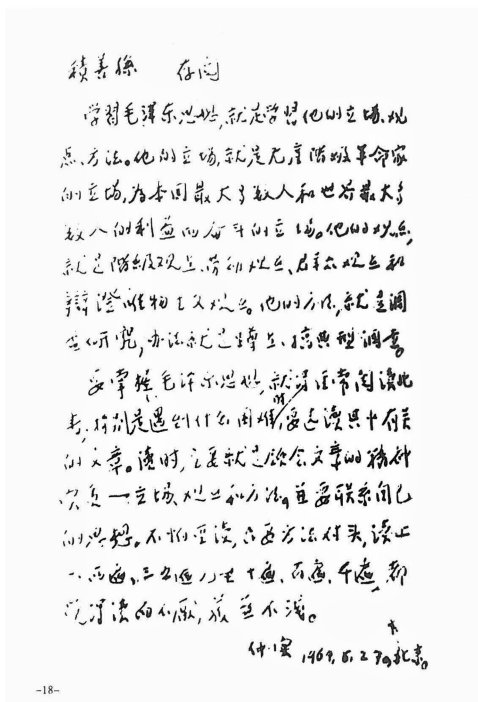 積善孫 存閱
学習毛泽东思想,就是学習他的立場、观
点、方法。他的立场,就是无産階級革命家
的立场,为本国最大多数人和世界最大多
数人的利益而奋斗的立场。他的观点,
就是階級观点、劳动观点、群众观点和
辯證唯物主义观点。他的方法,就是調
查研究,办法就是蹲点、搞典型調查。
要掌握毛泽东思想,就得经常阅读此
書,特别是遇到什么困难时,要选读其中有关
的文章。读时,主要就是领会文章的精神
实质—立场、观点和方法,並要联系自己
的思想。不怕重读,只要方法对头,读上
一、两遍、三、五遍乃至十遍、百遍、千遍,都
觉得读的不厭,获益不浅。
仲實 1969.5.27 于北京。
-18-